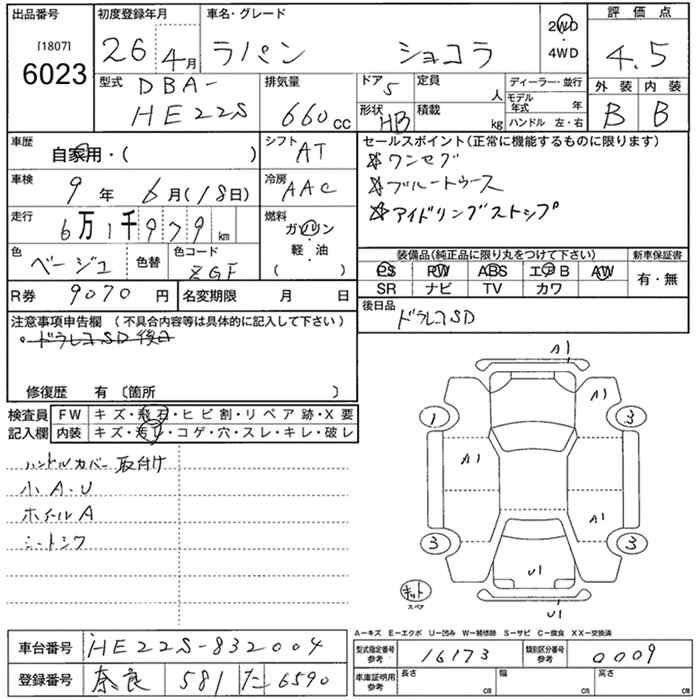 出品番号
[1807]
6023
初度登録年月
26 4月
車名・グレード
ラパン ショコラ
2WD
・
4WD
評価点
4.5
外装 内装
B B
型式
DBA-
HE22S
排気量
660cc
ドア 5
形状 HB
定員
人
積載
kg
ディーラー・並行
モデル
年式 年
ハンドル 左・右
車歴
自家用・( )
シフト
AT
車検
9年 6月(18日)
冷房
AAC
走行
6万1千979km
燃料
ガソリン
・
軽・油
( )
色
ベージュ
色替
色コード
ZGF
R券 9070円
名変期限 月 日
セールスポイント(正常に機能するものに限ります)
☆ワンセグ
☆ブルートゥース
☆アイドリングストップ
装備品(純正品に限り丸をつけて下さい)
新車保証書
PS PW ABS エアB AW
SR ナビ TV カワ
有・無
後日品
ドラレコSD
注意事項申告欄 (不具合内容等は具体的に記入して下さい)
・ドラレコSD後日
修復歴 有 〔箇所 〕
検査員
記入欄
FW キズ・飛石・ヒビ割・リペア跡・X要
内装 キズ・汚レ・コゲ・穴・スレ・キレ・破レ
ハンドルカバー取付け
小A.U
ホイールA
シートシワ
A1
A1
1
3
A1
A1
3
3
U1
U1
キット
スペア
A-キズ E-エクボ U-凹み W-補修跡 S-サビ C-腐食 XX-交換済
車台番号 HE22S-832004
登録番号 奈良 581 た 6590
型式指定番号
参考
16173
類別区分番号
参考
0009
車庫証明用
参考
長さ cm
幅 cm
高さ cm